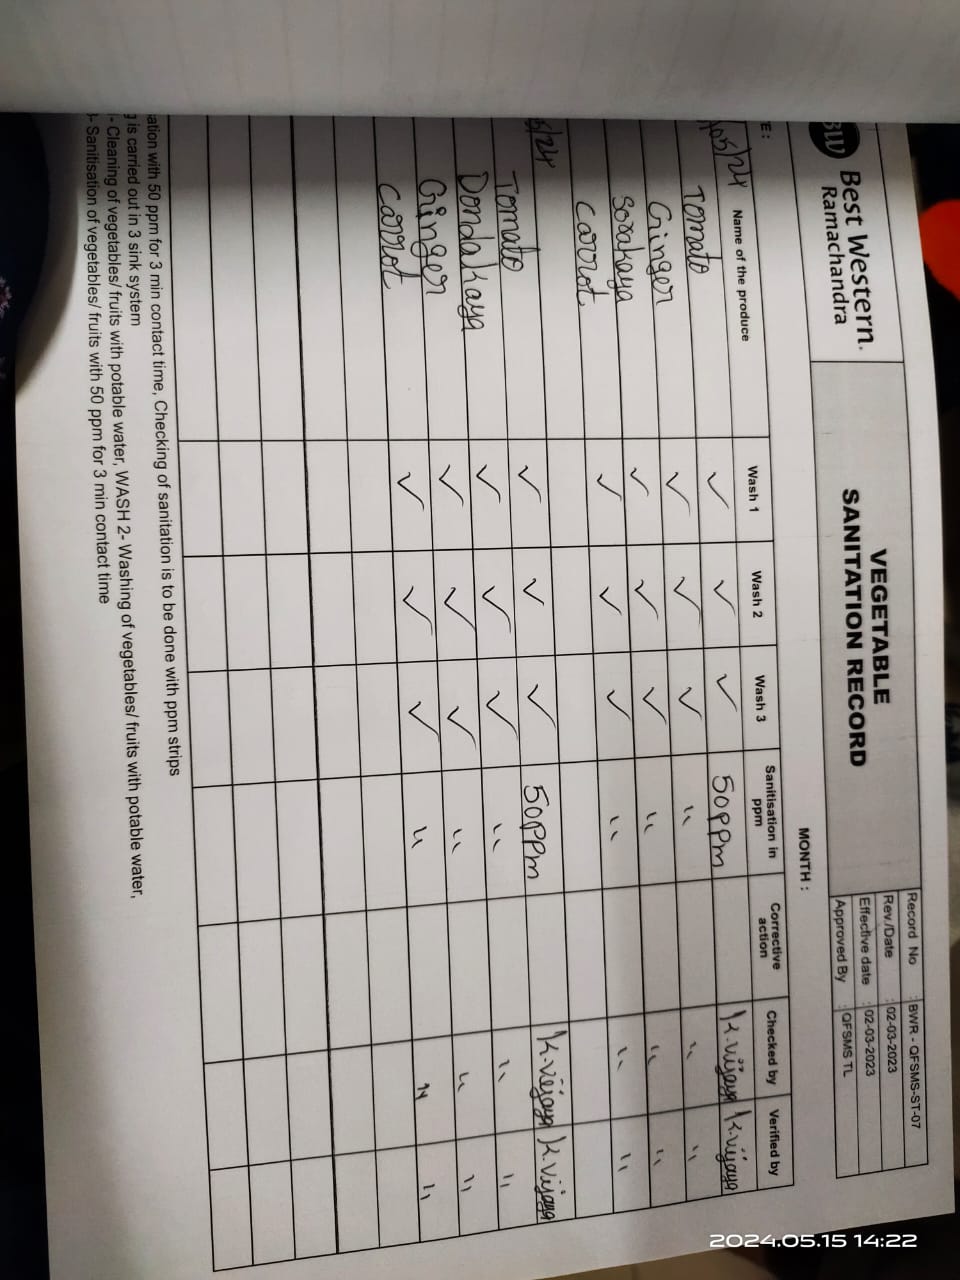 Best Western.
Ramachandra
VEGETABLE
SANITATION RECORD
Record No : BWR - QFSMS-ST-07
Rev./Date : 02-03-2023
Effective date : 02-03-2023
Approved By : QFSMS TL
MONTH :
Name of the produce Wash 1 Wash 2 Wash 3 Sanitisation in ppm Corrective action Checked by Verified by
05/24 Tomato ✓ ✓ ✓ 50ppm K.vijaya K.vijaya
Ginger ✓ ✓ ✓ " " "
Sorakaya ✓ ✓ ✓ " " "
Carrot. ✓ ✓ ✓ " " "
5/24
Tomato ✓ ✓ ✓ 50ppm K.vijaya K.vijaya
Dondakaya ✓ ✓ ✓ " " "
Ginger ✓ ✓ ✓ " " "
Carrot ✓ ✓ ✓ " " "
ation with 50 ppm for 3 min contact time, Checking of sanitation is to be done with ppm strips
g is carried out in 3 sink system
- Cleaning of vegetables/ fruits with potable water, WASH 2- Washing of vegetables/ fruits with potable water,
- Sanitisation of vegetables/ fruits with 50 ppm for 3 min contact time
2024.05.15 14:22